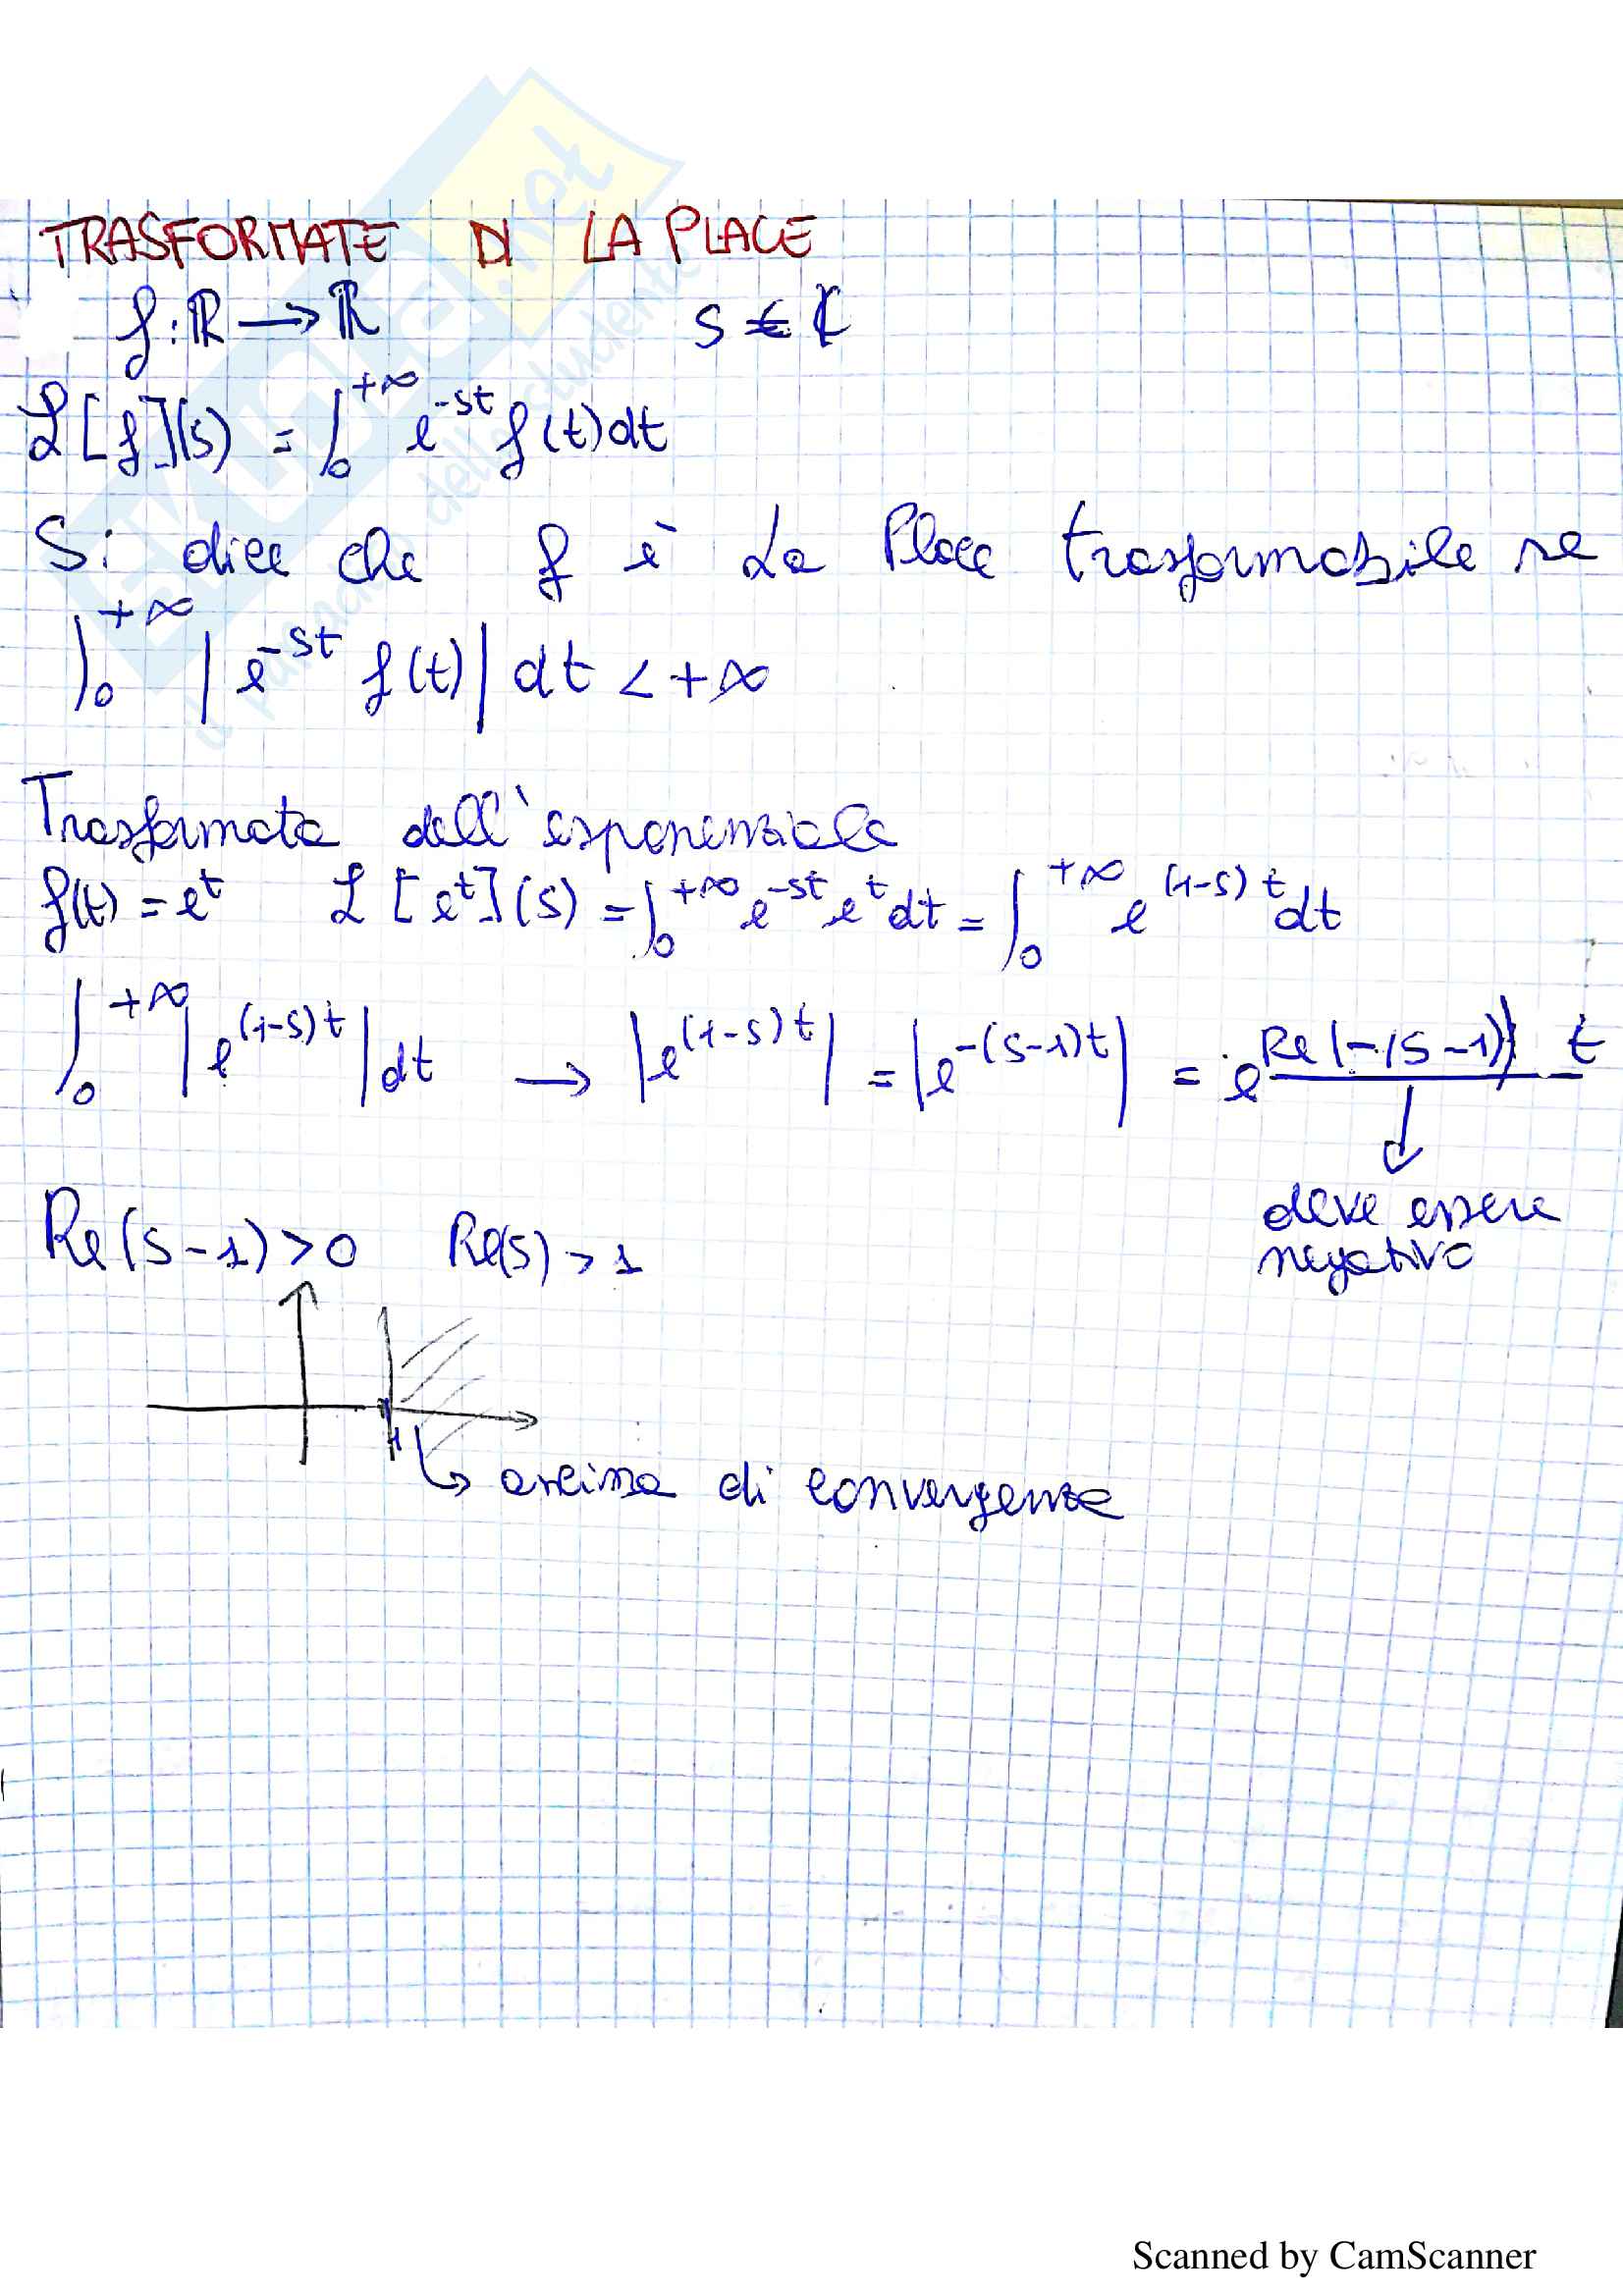 TRASFORMATE DI LA PLACE
f: ℝ → ℝ s ∈ ℂ
ℒ[f](s) = ∫₀^{+∞} e^{-st} f(t)dt
Si dice che f è La Place trasformabile se
∫₀^{+∞} |e^{-st} f(t)| dt < +∞
Trasformata dell'esponenziale
f(t) = e^t ℒ[e^t](s) = ∫₀^{+∞} e^{-st} e^t dt = ∫₀^{+∞} e^{(1-s)t} dt
∫₀^{+∞} |e^{(1-s)t}| dt → |e^{(1-s)t}| = |e^{-(s-1)t}| = e^{Re(-(s-1)) t}
deve essere
negativo
Re(s-1) > 0 Re(s) > 1
1
ascissa di convergenza
skuola.net
il paradiso dello studente
Scanned by CamScanner